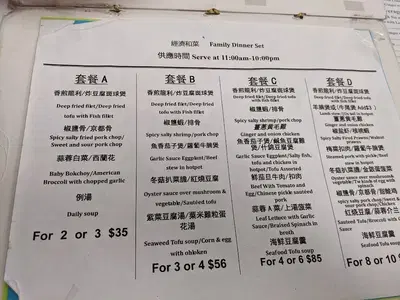 經濟和菜 Family Dinner Set
供應時間 Serve at 11:00am-10:00pm
套餐 A
香煎龍利/炸豆腐斑球煲
Deep fried filet/Deep fried
tofu with Fish filet
椒鹽骨/京都骨
Spicy salty fried pork chop/
Sweet and sour pork chop
蒜蓉白菜/西蘭花
Baby Bokchoy/American
Broccoli with chopped garlic
例湯
Daily soup
For 2 or 3 $35
套餐 B
香煎龍利/炸豆腐斑球煲
Deep fried filet/Deep fried
tofu with Fish filet
椒鹽蝦/排骨
Spicy salty shrimp/pork chop
魚香茄子煲/蘿蔔牛腩煲
Garlic Sauce Eggplant/Beef
stew in hotpot
冬菇扒菜膽/紅燒豆腐
Oyster sauce over mushroom &
vegetable/Sautéed tofu
紫菜豆腐湯/粟米雞粒蛋
花湯
Seaweed Tofu soup/Corn & egg
with chicken
For 3 or 4 $56
套餐 C
香煎龍利/炸豆腐斑球煲
Deep fried filet/Deep fried tofu
with Fish filet
椒鹽蝦/排骨
Spicy salty shrimp/pork chop
薑蔥黃毛雞
Ginger and onion chicken
魚香茄子煲/鹹魚雞粒豆腐
煲/什錦豆腐煲
Garlic Sauce Eggplant/Salty fish,
tofu and chicken in
hotpot/Tofu Assorted
鮮茄豆牛肉/和肉
Beef With Tomato and
Egg/Chinese pickle sauteed
pork
蒜蓉 A 菜/上湯菠菜
Leaf Lettuce with Garlic
Sauce/Braised Spinach in
broth
海鮮豆腐羹
Seafood Tofu soup
For 4 or 6 $85
套餐 D
香煎龍利/炸豆腐斑球煲
Deep fried filet/Deep fried tofu
with Fish filet
羊腩煲或
薑蔥黃毛雞
Ginger and onion chicken
椒鹽蝦/
Spicy salty shrimp/
梅菜扣肉/蘿蔔牛腩煲
Steamed pork with pickle/Beef
stewed in hotpot
冬菇扒菜膽/
Oyster sauce over mushroom
椒鹽骨/京都骨/
spicy salty pork chop/Sweet &
sour pork chop/Chicken
紅燒豆腐/蒜蓉
Sauteed Tofu/Broccoli with
海鮮豆腐羹
Seafood Tofu soup
For 8 or 10